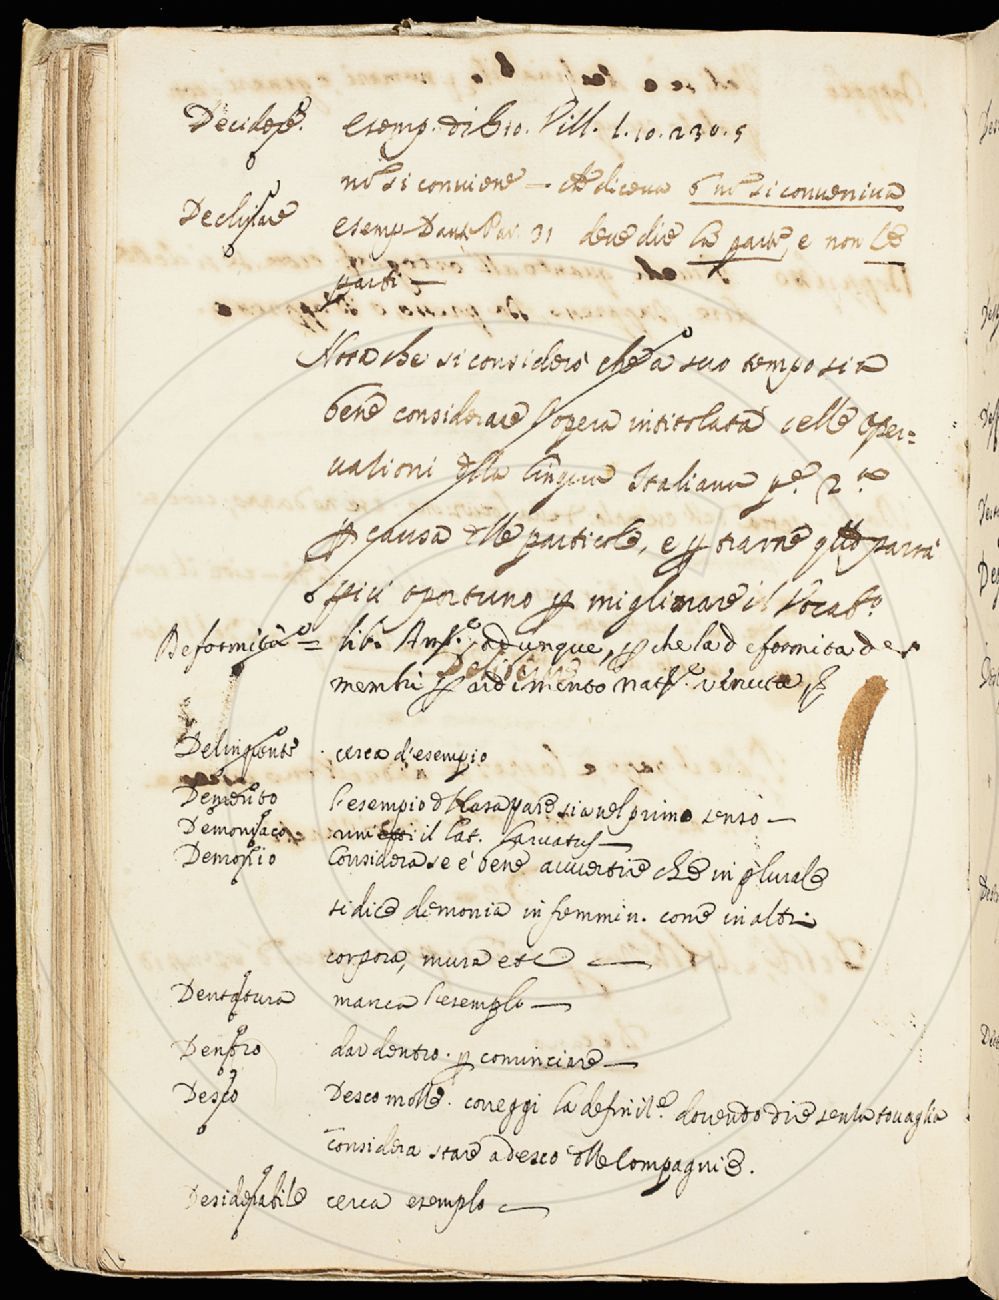 Decidere. esemp. di Gio. Vill. l. 10. 230. 5
nõ si conviene — che diceva ò nõ si conveniva
Declinare esemp. Dant. Par. 31 deve dire la parte, e non le
parti —
Nota che si considerò che a suo tempo sia
bene considerare l'opera intitolata delle Oser=
vationi della lingua Italiana
p causa delle particole, e p trarne parrà
più oportuno p migliorare il Vocab.º
Deformità = lib. adunque, p che la deformità de
membri p ardimento nat. venuta
Delinquente cerca d'esempio
Demerito l'esempio sia nel primo senso —
Demoniaco il Lat. Larvatus —
Demonio Considera se è bene avvertire che in plurale
si dice demonia in femmin. come in altri
corpora, mura etc —
Dentatura manca l'esemplo —
Dentro dar dentro. p cominciare —
Desco Desco molle. correggi la definit.e dovendo dire senza tovaglia
Considera stare a desco delle Compagnie.
Desiderabile cerca esemplo —